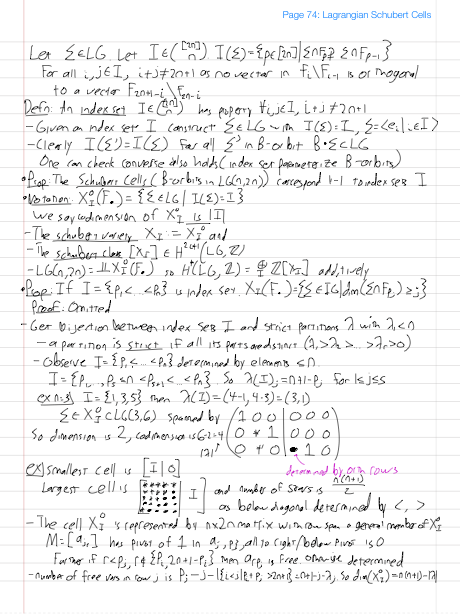 Page 74: Lagrangian Schubert Cells
Let Σ∈LG. Let I∈([2n] n) I(Σ)={p∈[2n] | Σ∩F_p ⊋ Σ∩F_{p-1}}
For all i,j∈I, i+j≠2n+1 as no vector in F_i\F_{i-1} is orthogonal
to a vector F_{2n+1-i}\F_{2n-i}
Defn: An index set I∈([2n] n) has property ∀i,j∈I, i+j≠2n+1
- Given an index set I construct Σ∈LG with I(Σ)=I, Σ=<e_i | i∈I>
- Clearly I(Σ')=I(Σ) for all Σ' in B-orbit B·Σ⊂LG
One can check converse also holds (index sets parameterize B-orbits)
• Prop: The Schubert Cells (B-orbits in LG(n,2n)) correspond 1-1 to index sets I
• Notation: X°_I(F.) = {Σ∈LG | I(Σ)=I}
We say codimension of X°_I is |I|
- The schubert variety X_I := X°_I and
- The schubert class [X_I] ∈ H^{2|I|}(LG, Z)
- LG(n,2n)=⨿X°_I(F.) so H*(LG, Z) = ⊕ Z[X_I] additively
• Prop: If I={p_1<..<p_n} is index set X_I(F.)={Σ∈LG | dim(Σ∩F_{p_j}) ≥ j}
Proof: Omitted
- Get bijection between index sets I and strict partitions λ with λ_1≤n
- a partition is strict if all its parts are distinct (λ_1>λ_2>...>λ_r>0)
- Observe I={p_1<...<p_n} determined by elements ≤n.
I={p_1,.., p_s ≤n <p_{s+1}<..<p_n} So λ(I)_j=n+1-p_j for 1≤j≤s
ex n=3 I={1,3,5} then λ(I)=(4-1, 4-3)=(3,1)
Σ∈X°_I⊂LG(3,6) spanned by (1 0 0 | 0 0 0
So dimension is 2, codimension is 6-2=4 0 * 1 | 0 0 0
|λ| 0 * 0 | • 1 0)
determined by orth rows
ex) Smallest cell is [I | 0]
Largest cell is [* | I] and number of stars is n(n+1)/2
as below diagonal determined by < , >
- The cell X°_I is represented by n×2n matrix with row span a general member of X°_I
M=[a_{jr}] has pivot of 1 in a_{j,p_j}, all to right/below pivot is 0
Further if r<p_j, r∉{p_i, 2n+1-p_i} then a_{jr} is free. Otherwise determined
- number of free vars in row j is p_j-j-|{i<j | p_i+p_j>2n+1}|=n+1-j-λ_j So dim(X°_I)=n(n+1)-|λ|